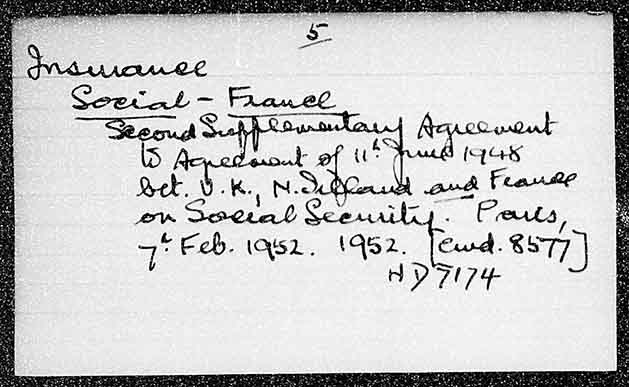 5
Insurance
Social - France
Second Supplementary Agreement
to Agreement of 11th June 1948
bet. U.K., N. Ireland and France
on Social Security. Paris,
7th Feb. 1952. 1952. [cmd. 8577]
HD7174